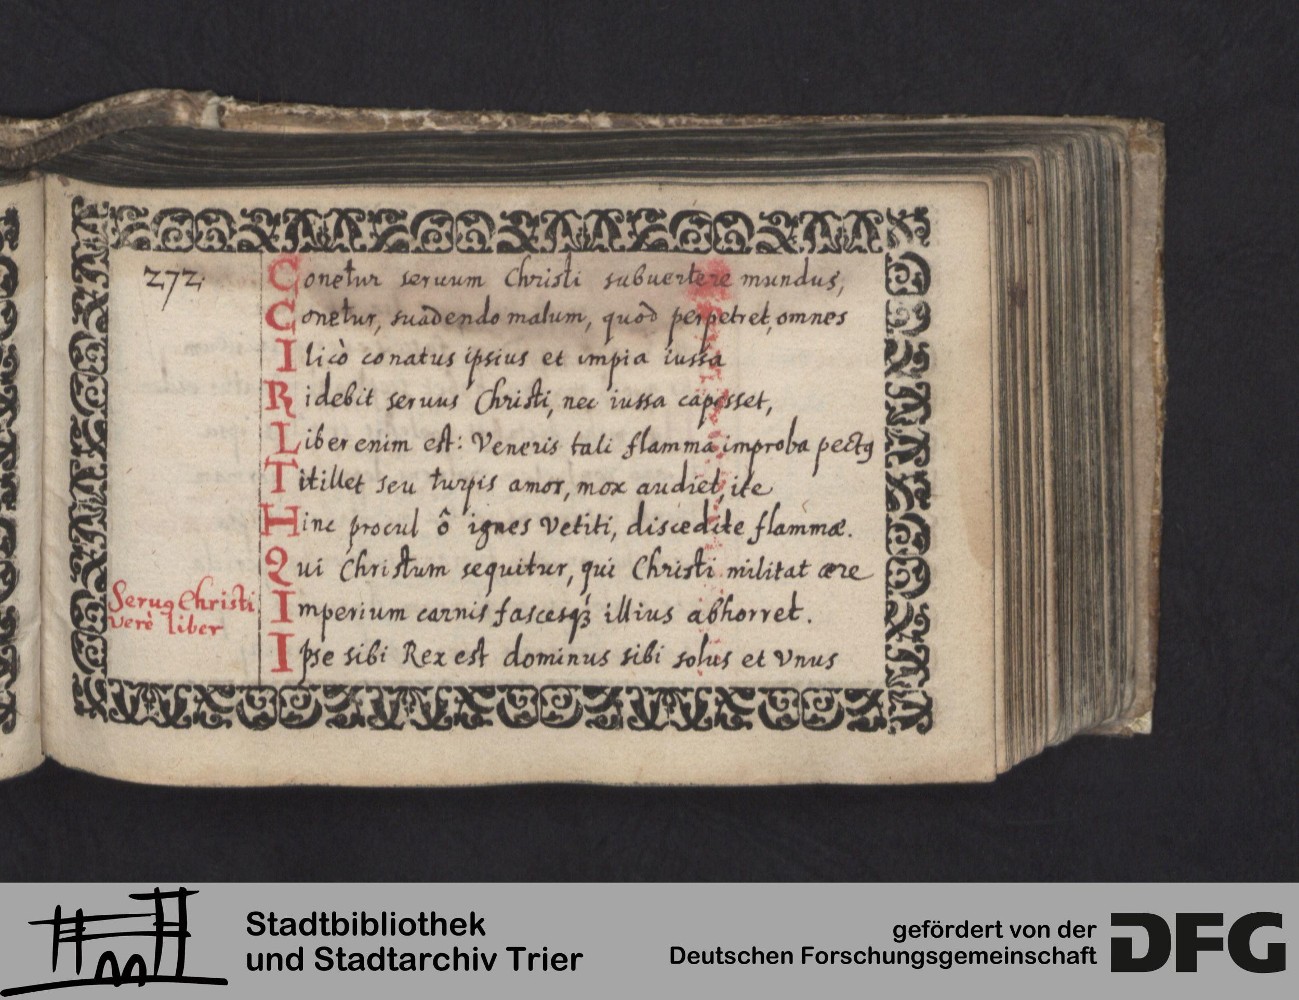 272.
Conetur seruum Christi subuertere mundus,
Conetur, suadendo malum, quòd perpetret, omnes
Ilicò conatus ipsius et impia iussa
Ridebit seruus Christi, nec iussa capesset,
Liber enim est: Veneris tali flamma improba pectꝰ
Titillet seu turpis amor, mox audiet, ite
Hinc procul ô ignes vetiti, discedite flammæ.
Qui Christum sequitur, qui Christi militat ære
Seruꝰ Christi
verè liber
Imperium carnis fascesqꝫ illius abhorret.
Ipse sibi Rex est dominus sibi solus et vnus
Stadtbibliothek
und Stadtarchiv Trier
gefördert von der
Deutschen Forschungsgemeinschaft
DFG